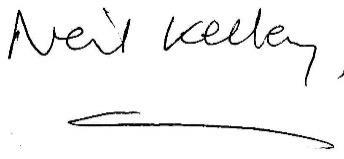 Neil Kelley,